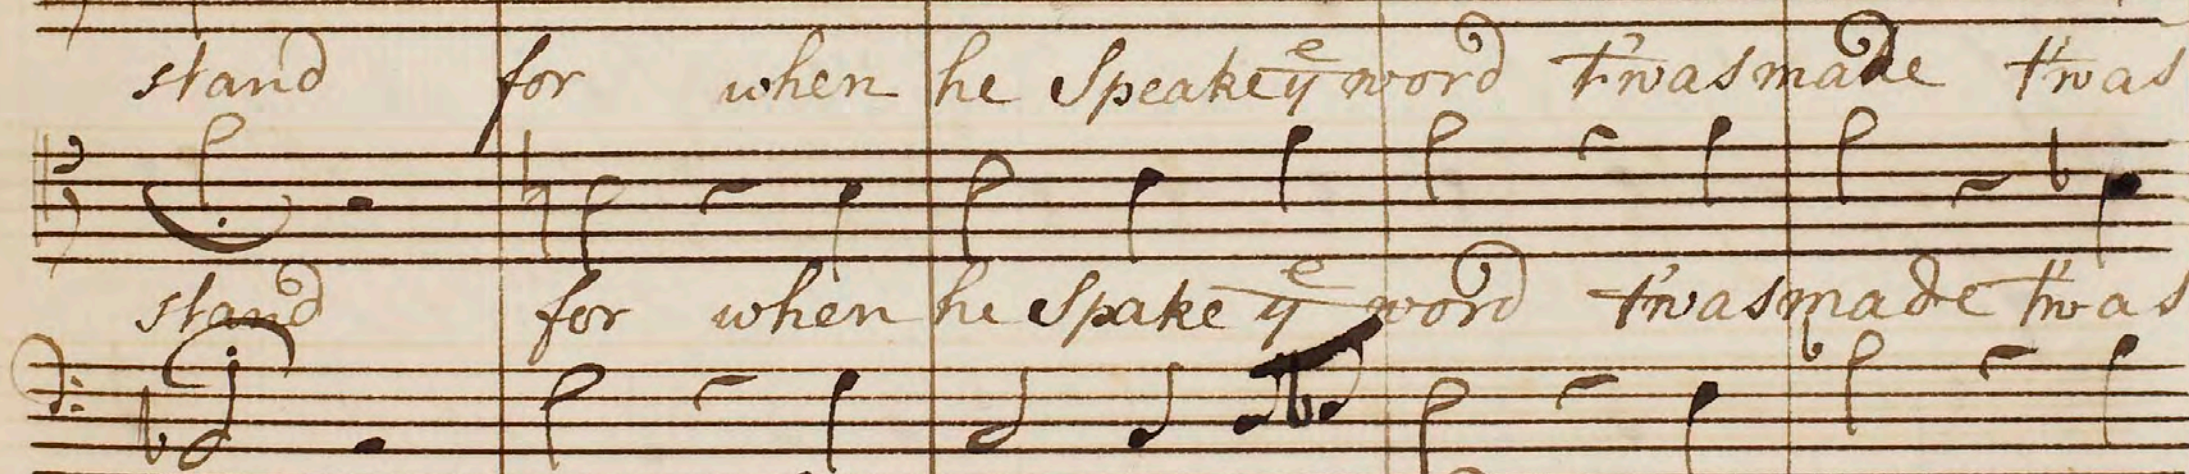 stand for when he Speake yᵉ word t'was made t'was
stand for when he Spake yᵉ word t'was made t'was